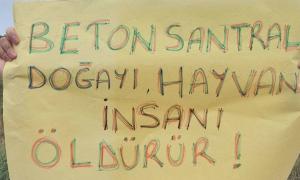 BETON SANTRAL
DOĞAYI, HAYVAN
İNSANI
ÖLDÜRÜR !